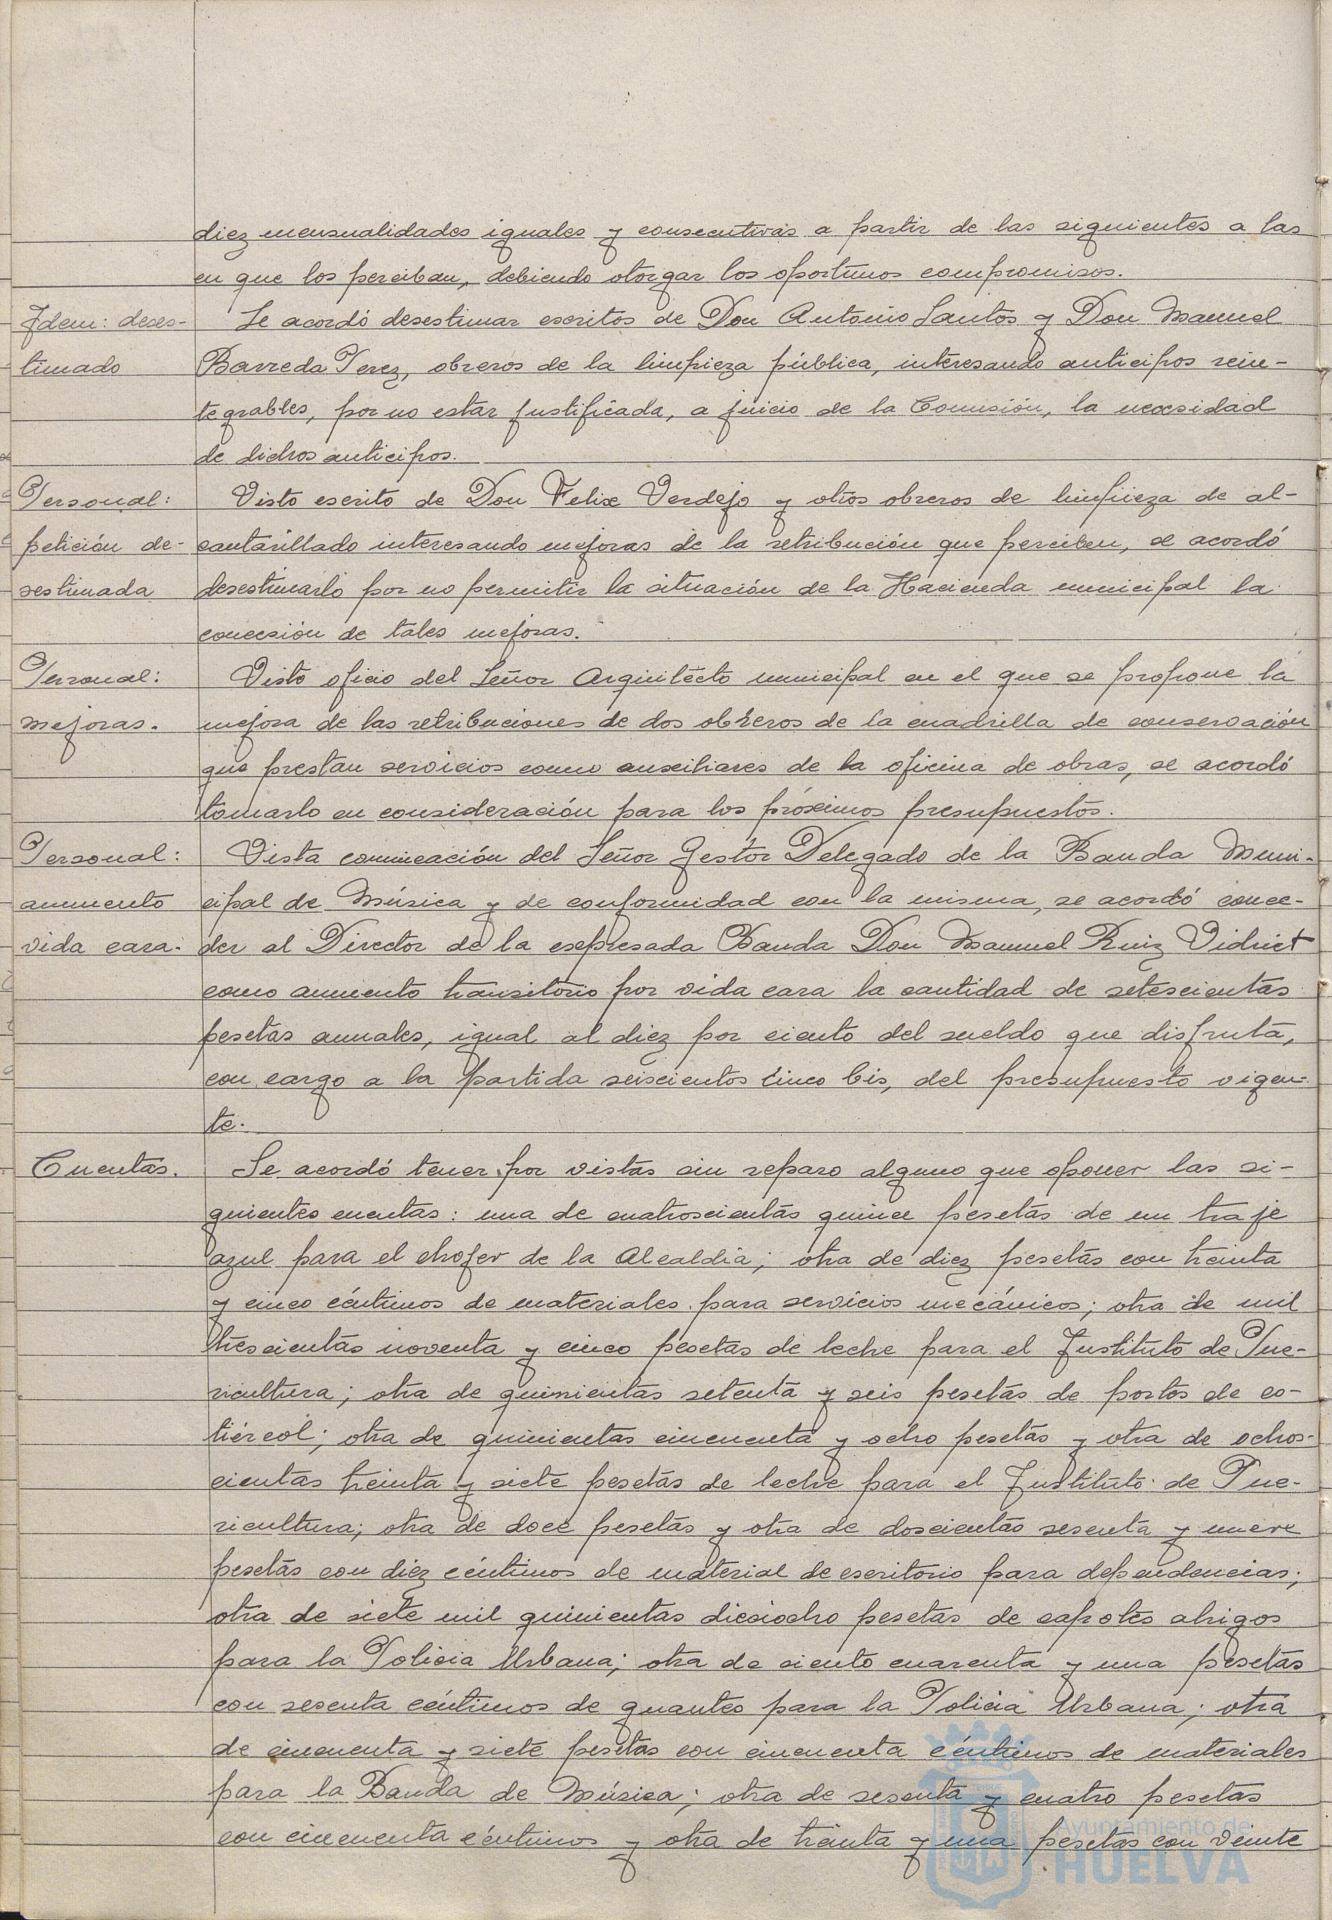 diez mensualidades iguales y consecutivas a partir de las siguientes a las
en que los perciban, debiendo otorgar los oportunos compromisos.
Idem: deses-
timado
Se acordó desestimar escritos de Don Antonio Santos y Don Manuel
Barreda Perez, obreros de la limpieza pública, interesando anticipos rein-
tegrables, por no estar justificada, a juicio de la Comisión, la necesidad
de dichos anticipos.
Personal:
petición de-
sestimada
Visto escrito de Don Felix Verdejo y otros obreros de limpieza de al-
cantarillado interesando mejoras de la retribución que perciben, se acordó
desestimarlo por no permitir la situación de la Hacienda municipal la
concesión de tales mejoras.
Personal:
mejoras.
Visto oficio del Señor Arquitécto municipal en el que se propone la
mejora de las retribuciones de dos obreros de la cuadrilla de conservación
que prestan servicios como auxiliares de la oficina de obras, se acordó
tomarlo en consideración para los próximos presupuestos.
Personal:
aumento
vida cara.
Vista comunicación del Señor Gestor Delegado de la Banda Muni-
cipal de Música y de conformidad con la misma, se acordó conce-
der al Director de la expresada Banda Don Manuel Ruiz Vidriet
como aumento transitorio por vida cara la cantidad de setescientas
pesetas anuales, igual al diez por ciento del sueldo que disfruta,
con cargo a la partida seiscientos cinco bis, del presupuesto vigen-
te.
Cuentas.
Se acordó tener por vistas sin reparo alguno que oponer las si-
guientes cuentas: una de cuatroscientas quince pesetas de un traje
azul para el chofer de la Alcaldia; otra de diez pesetas con treinta
y cinco céntimos de materiales para servicios mecánicos; otra de mil
trescientas noventa y cinco pesetas de leche para el Instituto de Pue-
ricultura; otra de quinientas setenta y seis pesetas de portos de es-
tiércol; otra de quinientas cincuenta y ocho pesetas y otra de ochos-
cientas treinta y siete pesetas de leche para el Instituto de Pue-
ricultura; otra de doce pesetas y otra de doscientas sesenta y nueve
pesetas con diez céntimos de material de escritorio para dependencias;
otra de siete mil quinientas dieciocho pesetas de capotes abrigos
para la Policia Urbana; otra de ciento cuarenta y una pesetas
con sesenta céntimos de guantes para la Policia Urbana; otra
de cincuenta y siete pesetas con cincuenta céntimos de materiales
para la Banda de Música; otra de sesenta y cuatro pesetas
con cincuenta céntimos y otra de treinta y una pesetas con veinte
Ayuntamiento de
HUELVA